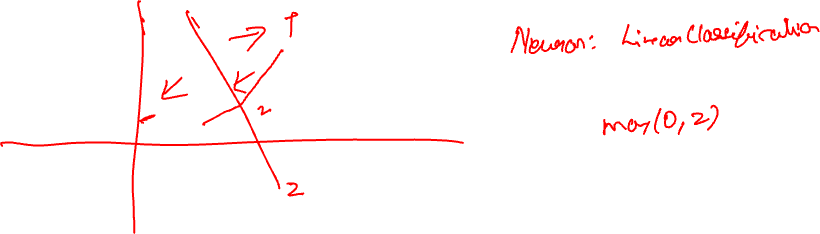 Neuron: Linear Classification
max(0, z)
z
z